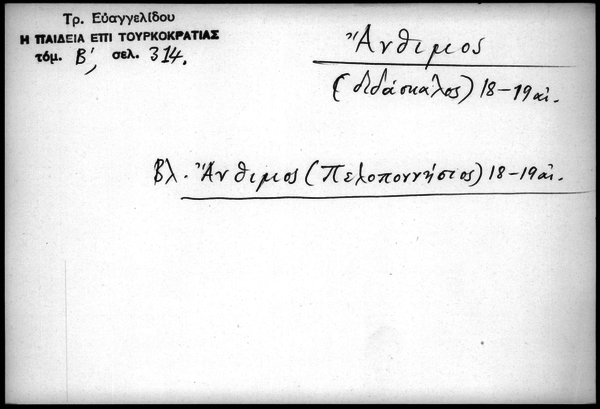 Τρ. Εὐαγγελίδου
Η ΠΑΙΔΕΙΑ ΕΠΙ ΤΟΥΡΚΟΚΡΑΤΙΑΣ
τόμ. Β', σελ. 314.
Ἄνθιμος
(διδάσκαλος) 18-19 αἰ.
Βλ. Ἄνθιμος (Πελοποννήσιος) 18-19 αἰ.